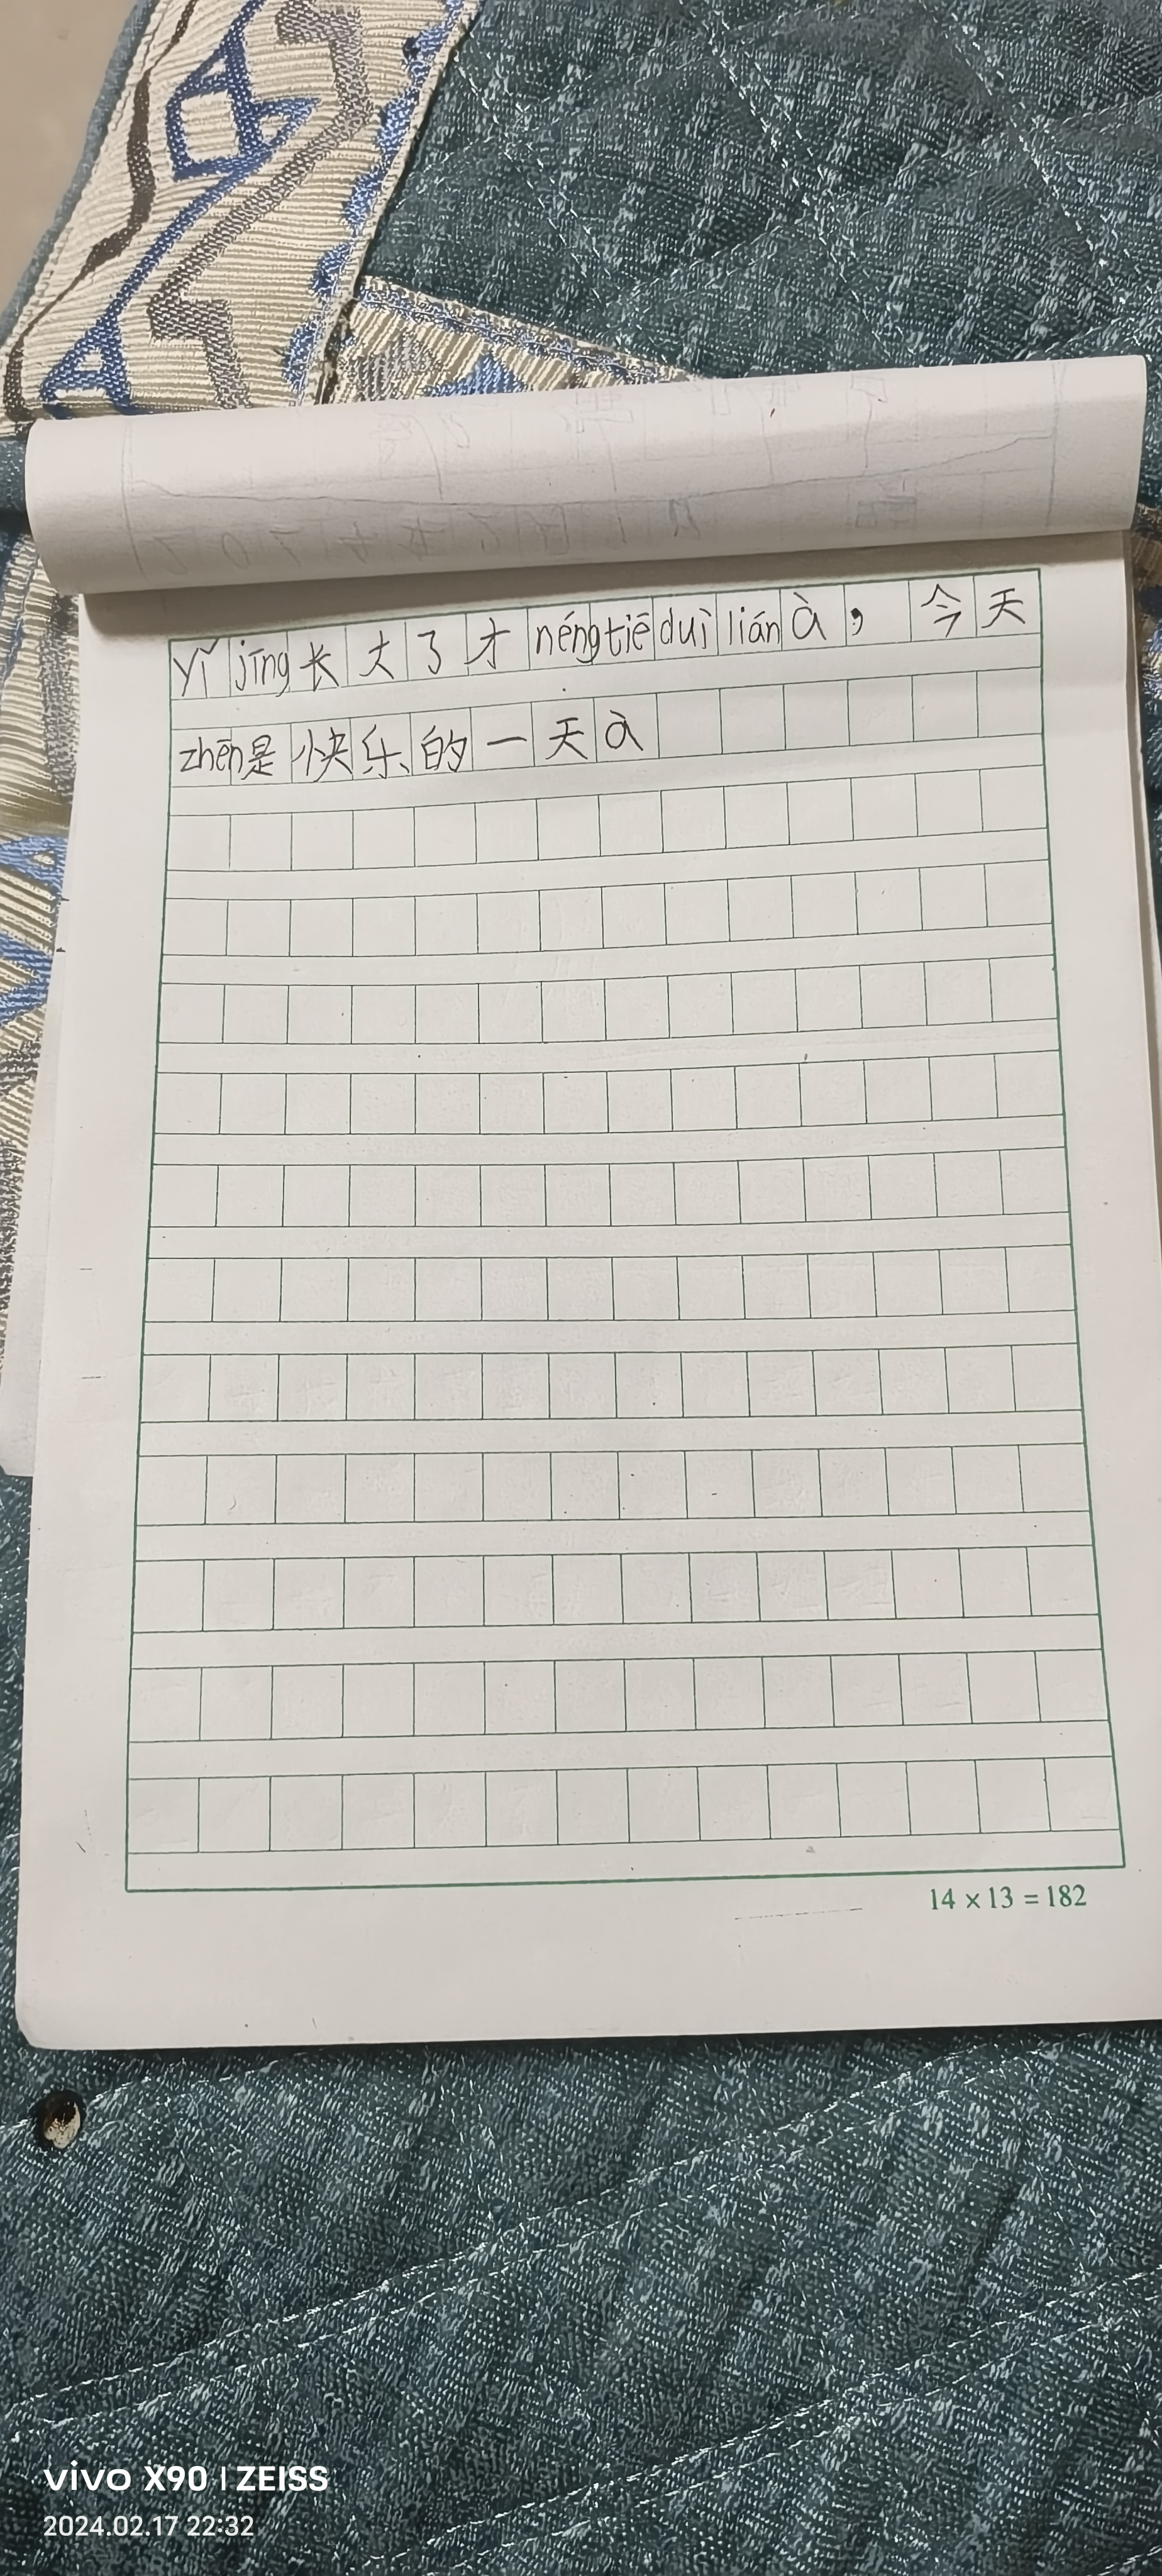 yǐ jīng长大了才néng tiē duì lián à，今天
zhēn是快乐的一天à
14×13=182
vivo X90 | ZEISS
2024.02.17 22:32